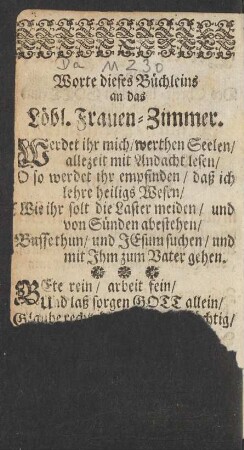 Da M 230
Worte dieses Büchleins
an das
Löbl. Frauen-Zimmer.
Werdet ihr mich/ werthen Seelen/
allezeit mit Andacht lesen/
O so werdet ihr empfinden/ daß ich
lehre heiligs Wesen/
Wie ihr solt die Laster meiden/ und
von Sünden abestehen/
Busse thun/ und JEsum suchen/ und
mit Ihm zum Vater gehen.
BEte rein/ arbeit fein/
Und laß sorgen GOTT allein/
Glaube